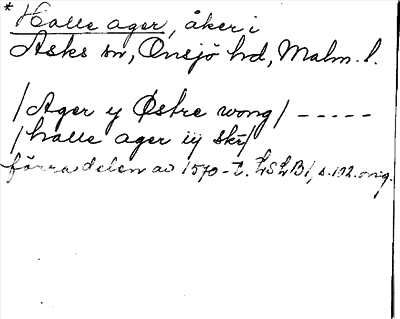 * Halle ager, åker i
Asks sn, Onsjö hd, Malm. l.
/Ager y Østre wong/ -----
/halle ager iij skr/
förra delen av 1570-t. LSLB1, s.192. orig.